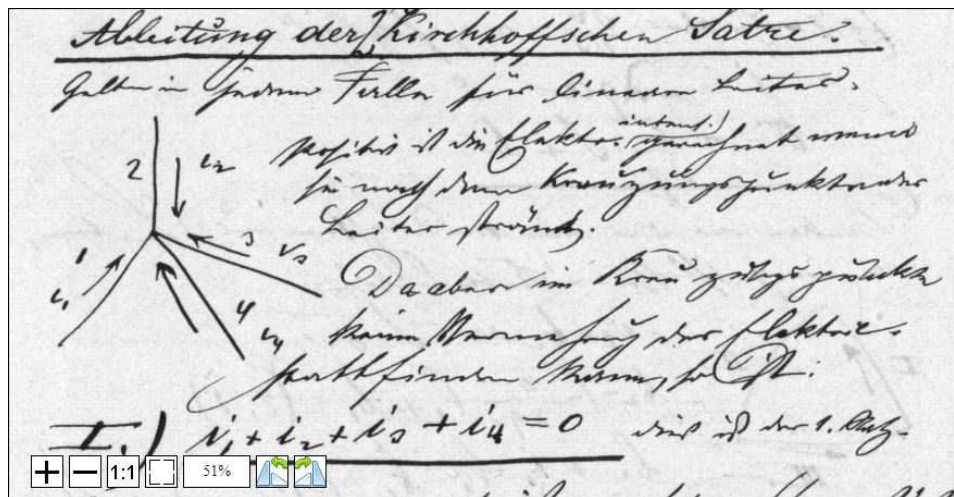 Ableitung der Kirchhoffschen Sätze.
Gelten in jedem Falle für lineare Leiter.
2 i₂ Positiv ist die Elektr. intens. gerechnet wenn
sie nach dem Kreuzungspunkte der
Leiter strömt.
1 i₁ 3 i₃ 4 i₄
Da aber im Kreuzungspunkte
keine Vermehrung der Elektric.
stattfinden kann, so ist:
I.) i₁ + i₂ + i₃ + i₄ = 0 dies ist der 1. Satz.
1:1 51%